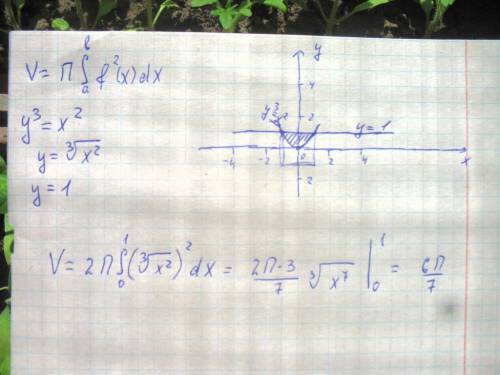 V = π ∫ₐᵇ f²(x) dx
y³ = x²
y = ∛x²
y = 1
y
4
2
y³ = x²
y = 1
-4 -2 0 2 4 x
2
V = 2π ∫₀¹ (∛x²)² dx = 2π·3/7 ∛x⁷ |₀¹ = 6π/7